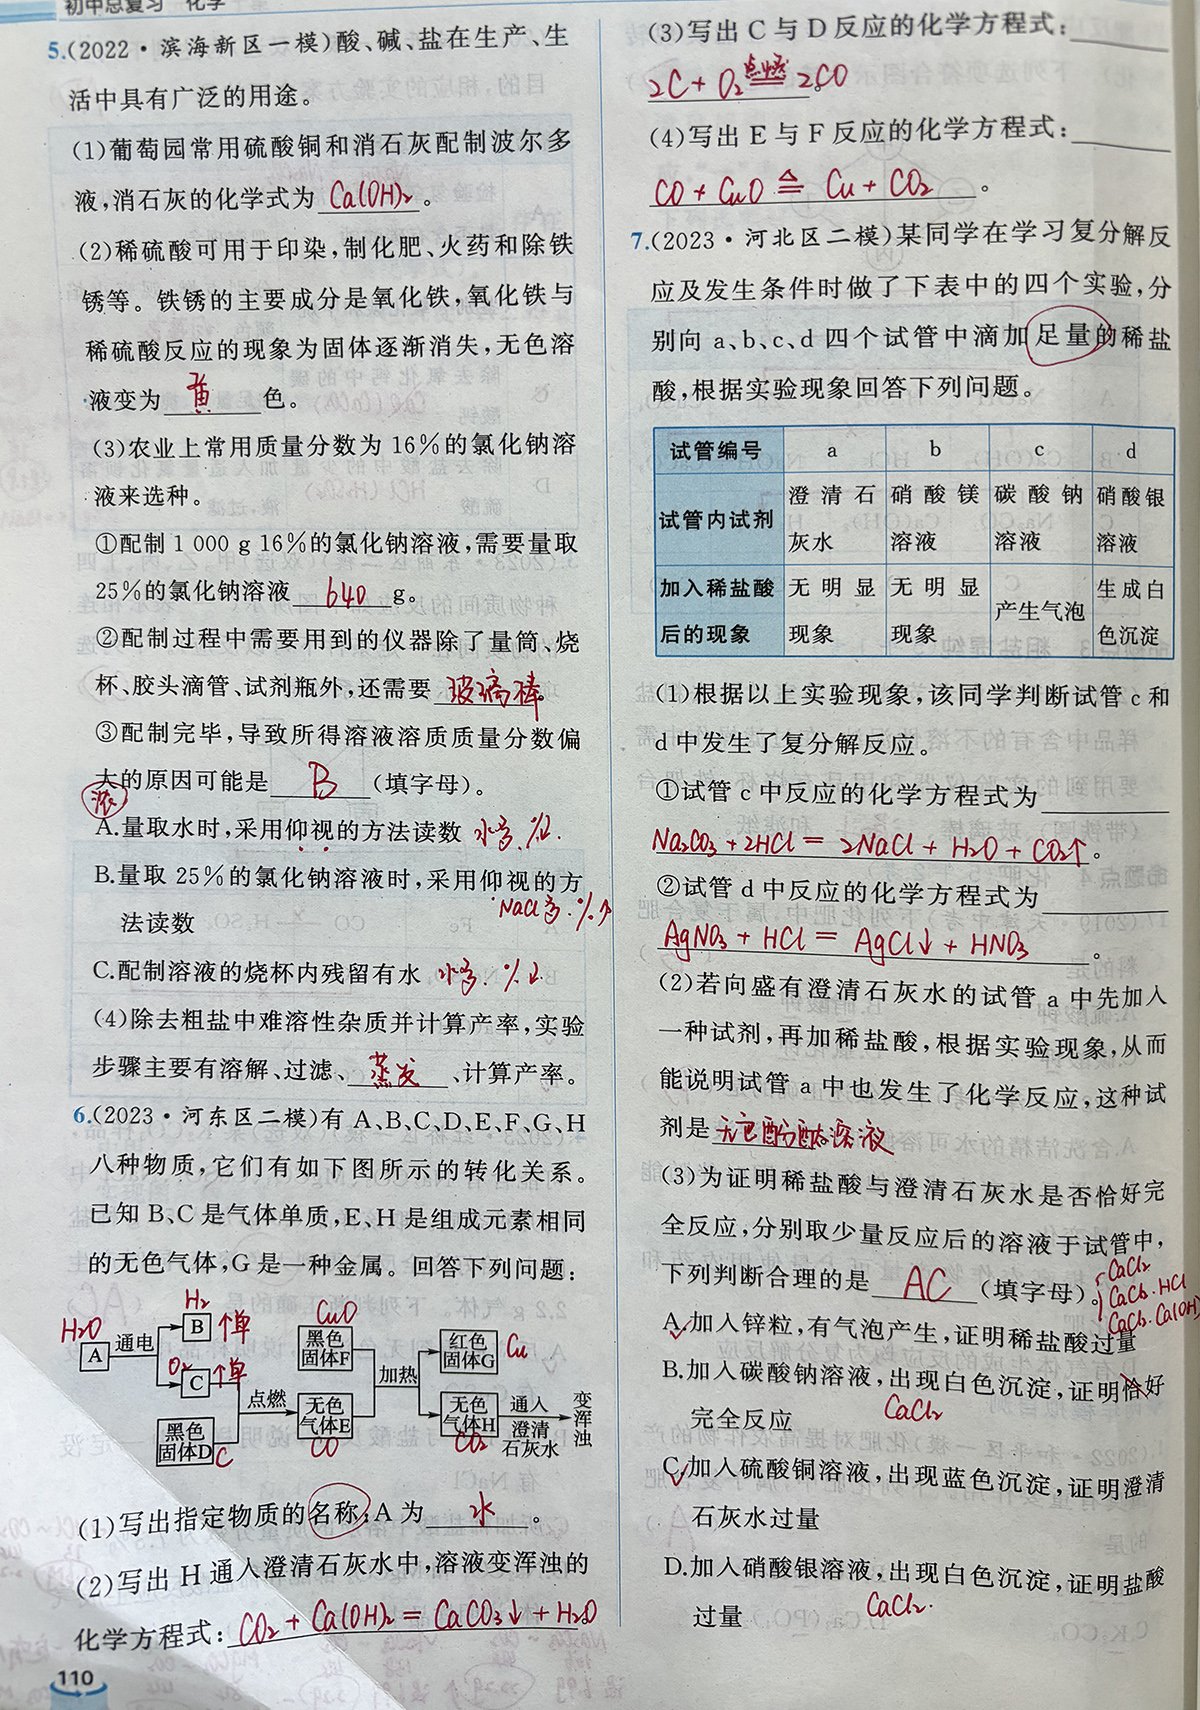 初中总复习 化学
5.(2022·滨海新区一模)酸、碱、盐在生产、生
活中具有广泛的用途。
(1)葡萄园常用硫酸铜和消石灰配制波尔多
液,消石灰的化学式为 Ca(OH)₂ 。
(2)稀硫酸可用于印染,制化肥、火药和除铁
锈等。铁锈的主要成分是氧化铁,氧化铁与
稀硫酸反应的现象为固体逐渐消失,无色溶
液变为 黄 色。
(3)农业上常用质量分数为16%的氯化钠溶
液来选种。
①配制1 000 g 16%的氯化钠溶液,需要量取
25%的氯化钠溶液 640 g。
②配制过程中需要用到的仪器除了量筒、烧
杯、胶头滴管、试剂瓶外,还需要 玻璃棒。
③配制完毕,导致所得溶液溶质质量分数偏
大的原因可能是 B (填字母)。
浓
A.量取水时,采用仰视的方法读数 水多.%↓.
B.量取25%的氯化钠溶液时,采用仰视的方
NaCl多.%↑
法读数
C.配制溶液的烧杯内残留有水 水多.%↓.
(4)除去粗盐中难溶性杂质并计算产率,实验
步骤主要有溶解、过滤、 蒸发 、计算产率。
6.(2023·河东区二模)有A、B、C、D、E、F、G、H
八种物质,它们有如下图所示的转化关系。
已知B、C是气体单质,E、H是组成元素相同
的无色气体,G是一种金属。回答下列问题:
H₂O A 通电 H₂ B 个单
O₂ C 个单
黑色固体D C 点燃
CuO 黑色固体F
无色气体E CO
加热
红色固体G Cu
无色气体H CO₂
通入澄清石灰水 变浑浊
(1)写出指定物质的名称:A为 水 。
(2)写出H通入澄清石灰水中,溶液变浑浊的
化学方程式: CO₂+Ca(OH)₂=CaCO₃↓+H₂O
110
(3)写出C与D反应的化学方程式:
2C+O₂ 点燃 2CO 。
(4)写出E与F反应的化学方程式:
CO+CuO △= Cu+CO₂ 。
7.(2023·河北区二模)某同学在学习复分解反
应及发生条件时做了下表中的四个实验,分
别向a、b、c、d四个试管中滴加足量的稀盐
酸,根据实验现象回答下列问题。
试管编号 a b c d
试管内试剂 澄清石灰水 硝酸镁溶液 碳酸钠溶液 硝酸银溶液
加入稀盐酸后的现象 无明显现象 无明显现象 产生气泡 生成白色沉淀
(1)根据以上实验现象,该同学判断试管c和
d中发生了复分解反应。
①试管c中反应的化学方程式为
Na₂CO₃+2HCl=2NaCl+H₂O+CO₂↑ 。
②试管d中反应的化学方程式为
AgNO₃+HCl=AgCl↓+HNO₃ 。
(2)若向盛有澄清石灰水的试管a中先加入
一种试剂,再加稀盐酸,根据实验现象,从而
能说明试管a中也发生了化学反应,这种试
剂是 无色酚酞溶液
(3)为证明稀盐酸与澄清石灰水是否恰好完
全反应,分别取少量反应后的溶液于试管中,
下列判断合理的是 AC (填字母)。
CaCl₂
CaCl₂.HCl
CaCl₂.Ca(OH)
A.加入锌粒,有气泡产生,证明稀盐酸过量
B.加入碳酸钠溶液,出现白色沉淀,证明恰好
CaCl₂
完全反应
C.加入硫酸铜溶液,出现蓝色沉淀,证明澄清
石灰水过量
D.加入硝酸银溶液,出现白色沉淀,证明盐酸
CaCl₂.
过量